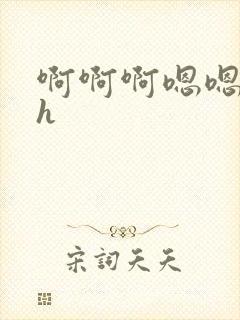 啊啊啊嗯嗯
h
宋詞天天